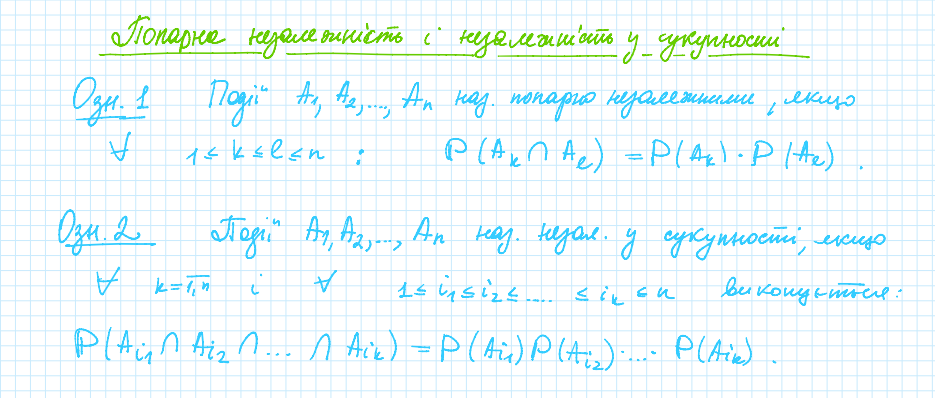 Попарна незалежність і незалежність у сукупності
Озн. 1 Події A₁, A₂, ..., Aₙ наз. попарно незалежними, якщо
∀ 1 ≤ k ≤ l ≤ n : P(Aₖ ∩ Aₗ) = P(Aₖ) · P(Aₗ) .
Озн. 2 Події A₁, A₂, ..., Aₙ наз. незал. у сукупності, якщо
∀ k = 1,n̅ і ∀ 1 ≤ i₁ ≤ i₂ ≤ .... ≤ iₖ ≤ n виконується:
P(A_{i₁} ∩ A_{i₂} ∩ ... ∩ A_{iₖ}) = P(A_{i₁}) P(A_{i₂}) · ... · P(A_{iₖ}) .